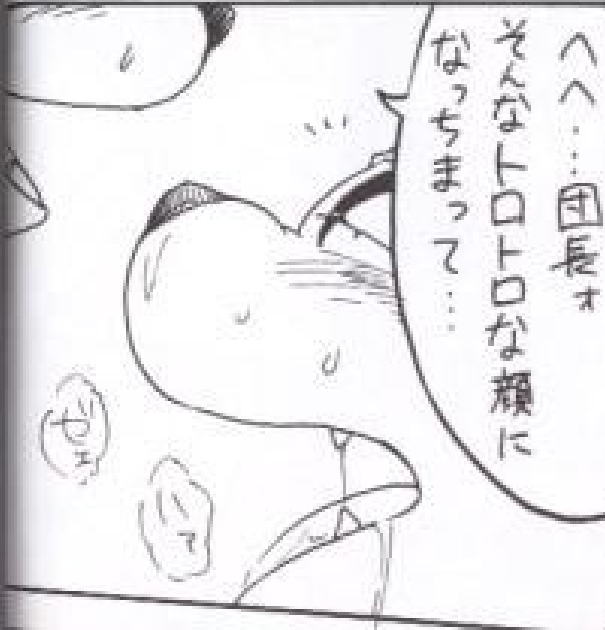 へへ…団長ォ
そんなトロトロな顔に
なっちまって…